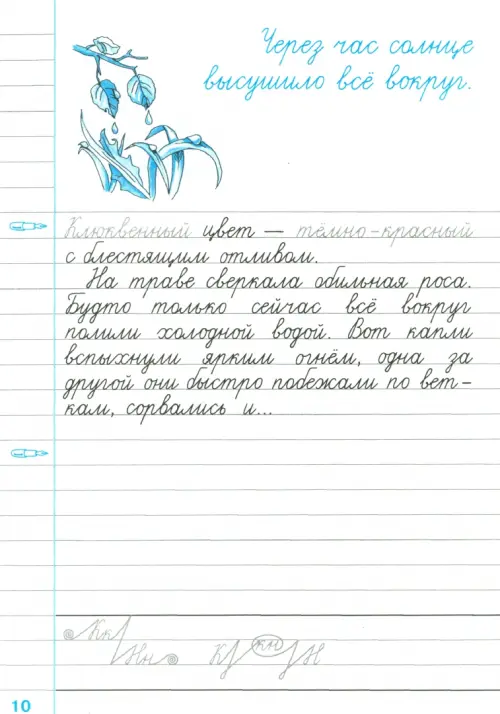 Через час солнце
высушило всё вокруг.
Клюквенный цвет — тёмно-красный
с блестящим отливом.
На траве сверкала обильная роса.
Будто только сейчас всё вокруг
полили холодной водой. Вот капли
вспыхнули ярким огнём, одна за
другой они быстро побежали по вет-
кам, сорвались и...
Кк
Нн
К кн Н
10